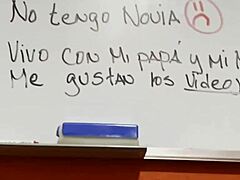 No tengo Novia
Vivo con Mi PAPÁ y Mi
Me gustan los Video